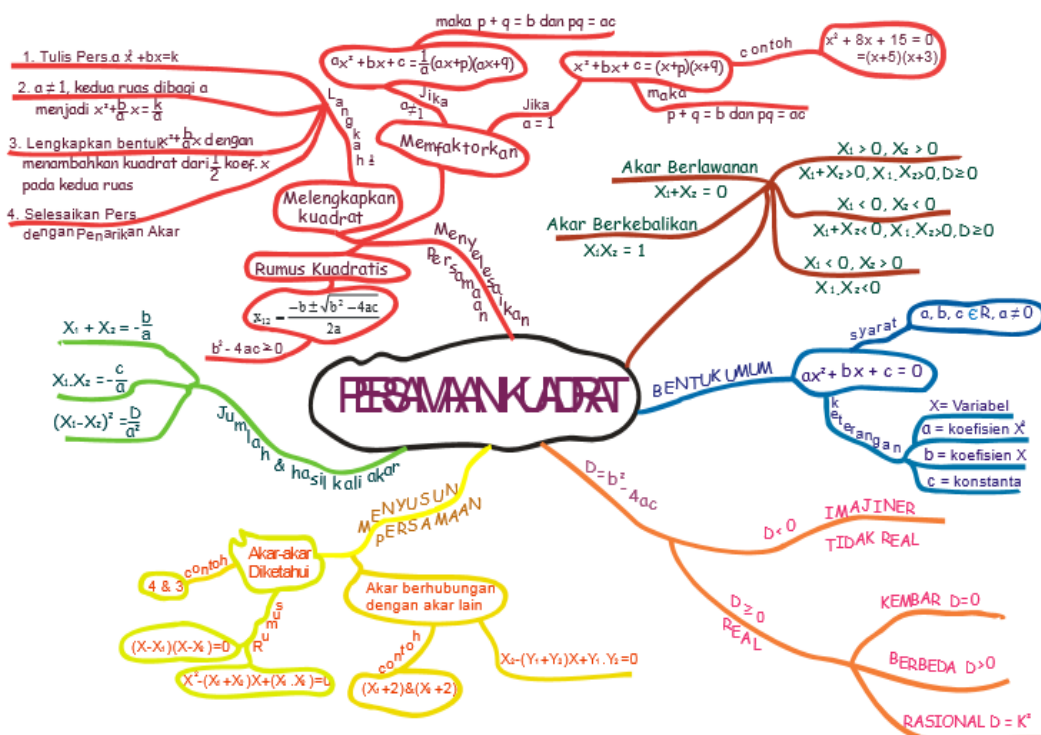 PERSAMAAN KUADRAT
Menyelesaikan
Persamaan
Memfaktorkan
Jika
a≠1
ax² + bx + c = 1/a (ax+p)(ax+q)
maka p + q = b dan pq = ac
Jika
a = 1
x² + bx + c = (x+p)(x+q)
contoh
x² + 8x + 15 = 0
=(x+5)(x+3)
maka
p + q = b dan pq = ac
Melengkapkan
kuadrat
Langkah²
1. Tulis Pers.a x² +bx=k
2. a ≠ 1, kedua ruas dibagi a
menjadi x²+b/a x = k/a
3. Lengkapkan bentuk x²+b/a x dengan
menambahkan kuadrat dari 1/2 koef. x
pada kedua ruas
4. Selesaikan Pers
dengan Penarikan Akar
Rumus Kuadratis
x₁₂ = (-b ± √(b² - 4ac))/2a
b² - 4ac ≥ 0
Akar Berlawanan
X₁+X₂ = 0
Akar Berkebalikan
X₁X₂ = 1
X₁ > 0, X₂ > 0
X₁+X₂>0, X₁.X₂>0, D≥0
X₁ < 0, X₂ < 0
X₁+X₂<0, X₁.X₂>0, D≥0
X₁ < 0, X₂ > 0
X₁.X₂<0
BENTUK UMUM
ax² + bx + c = 0
syarat
a, b, c € R, a ≠ 0
keterangan
X= Variabel
a = koefisien X²
b = koefisien X
c = konstanta
D=b²-4ac
D<0
IMAJINER
TIDAK REAL
D ≥ 0
REAL
KEMBAR D=0
BERBEDA D>0
RASIONAL D = K²
MENYUSUN
PERSAMAAN
Akar-akar
Diketahui
contoh
4 & 3
Rumus
(X-X₁)(X-X₂)=0
X²-(X₁+X₂)X+(X₁.X₂)=0
Akar berhubungan
dengan akar lain
contoh
(X₁+2)&(X₂+2)
X₂-(Y₁+Y₂)X+Y₁.Y₂=0
Jumlah & hasil kali akar
X₁ + X₂ = -b/a
X₁.X₂ = -c/a
(X₁-X₂)² = D/a²